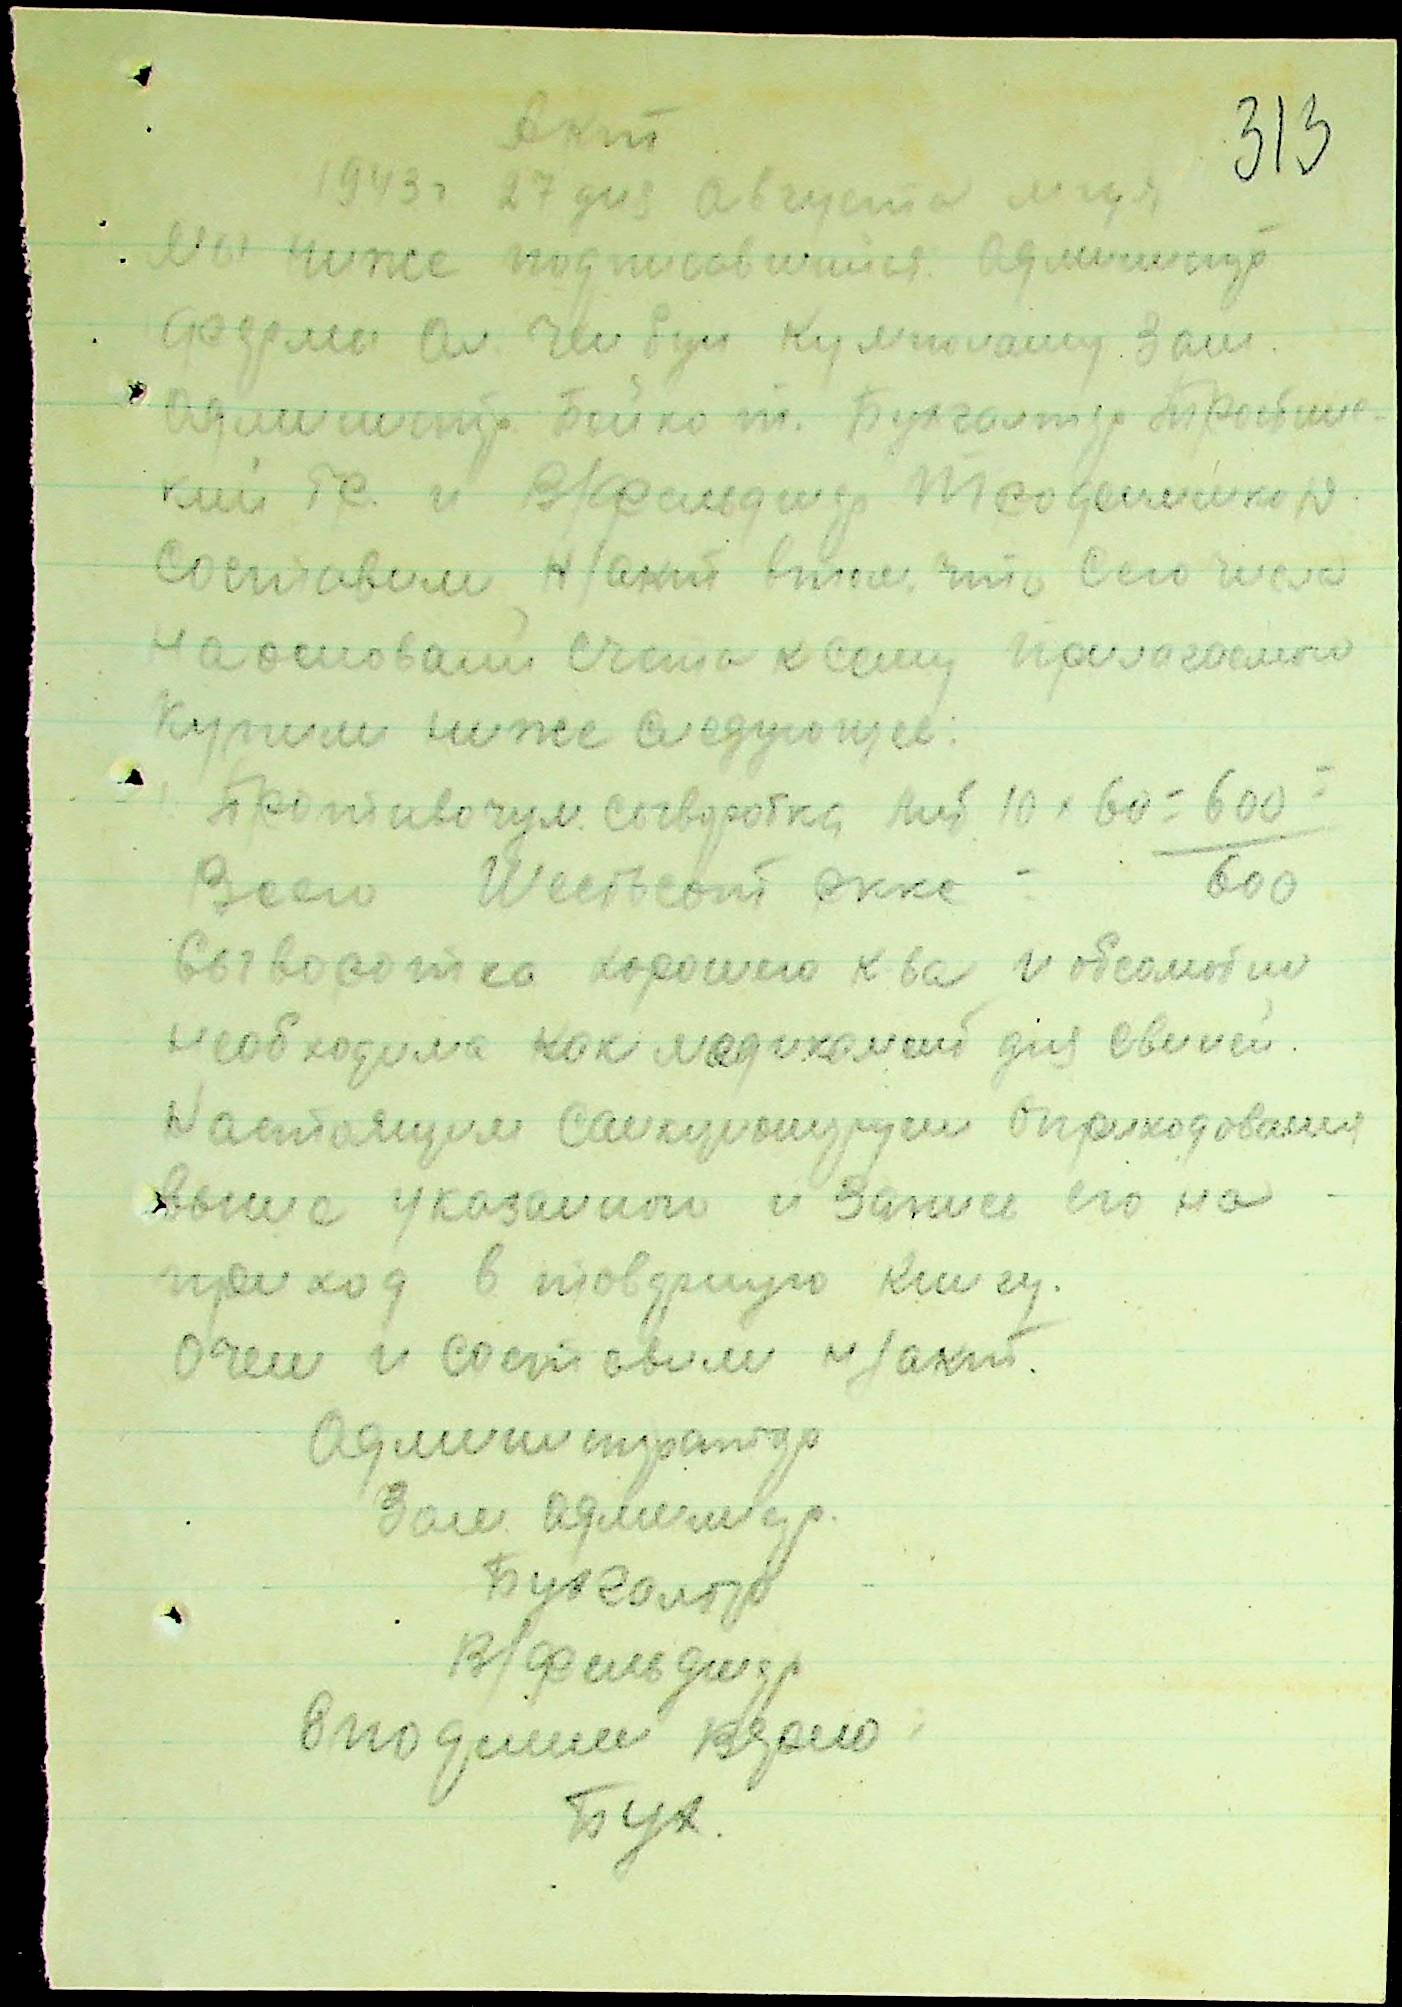 313
Акт
1943 г 27 дня августа м-ця
Мы ниже подписавшийся. Администр
фермы Ал. Зам.
Администр. Бойко т. Бухгалтер
кий и В/фельдшер
Составили н/акт в том, что Сего числа
на основани Счета к сему прилагаемого
Купили ниже следующее:
1. Противочум. сыворотка лит 10 х 60 = 600 =
Всего Шестьсот рккс - 600
Сыворотка хорошего к-ва и обсолютно
необходима как медикамент для свиней.
Настоящим Санкционируем оприходования
выше указанного и запись его на
приход в товарную книгу.
О чем и составили н/акт.
Администратор
Зам. админстр.
Бухгалтр
В/фельдшер
С подлинным верно:
Бух.